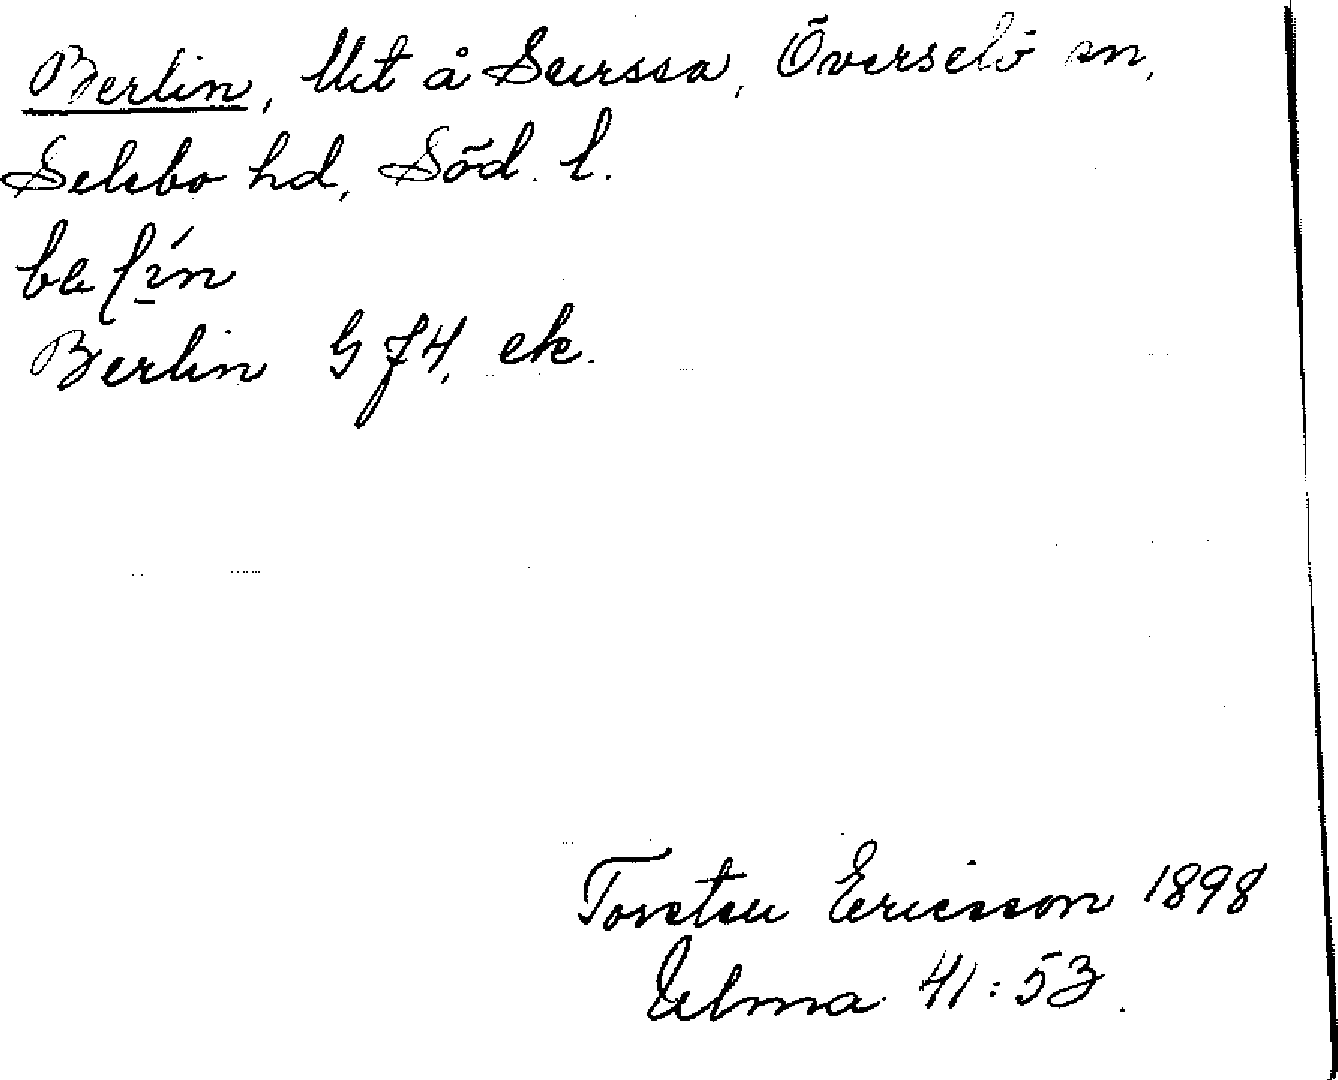 Berlin, Ut å Sursa, Överselö sn,
Selebo hd, Söd. l.
Berlin G J4, ek.
Torsten Ericsson 1898
41:53.